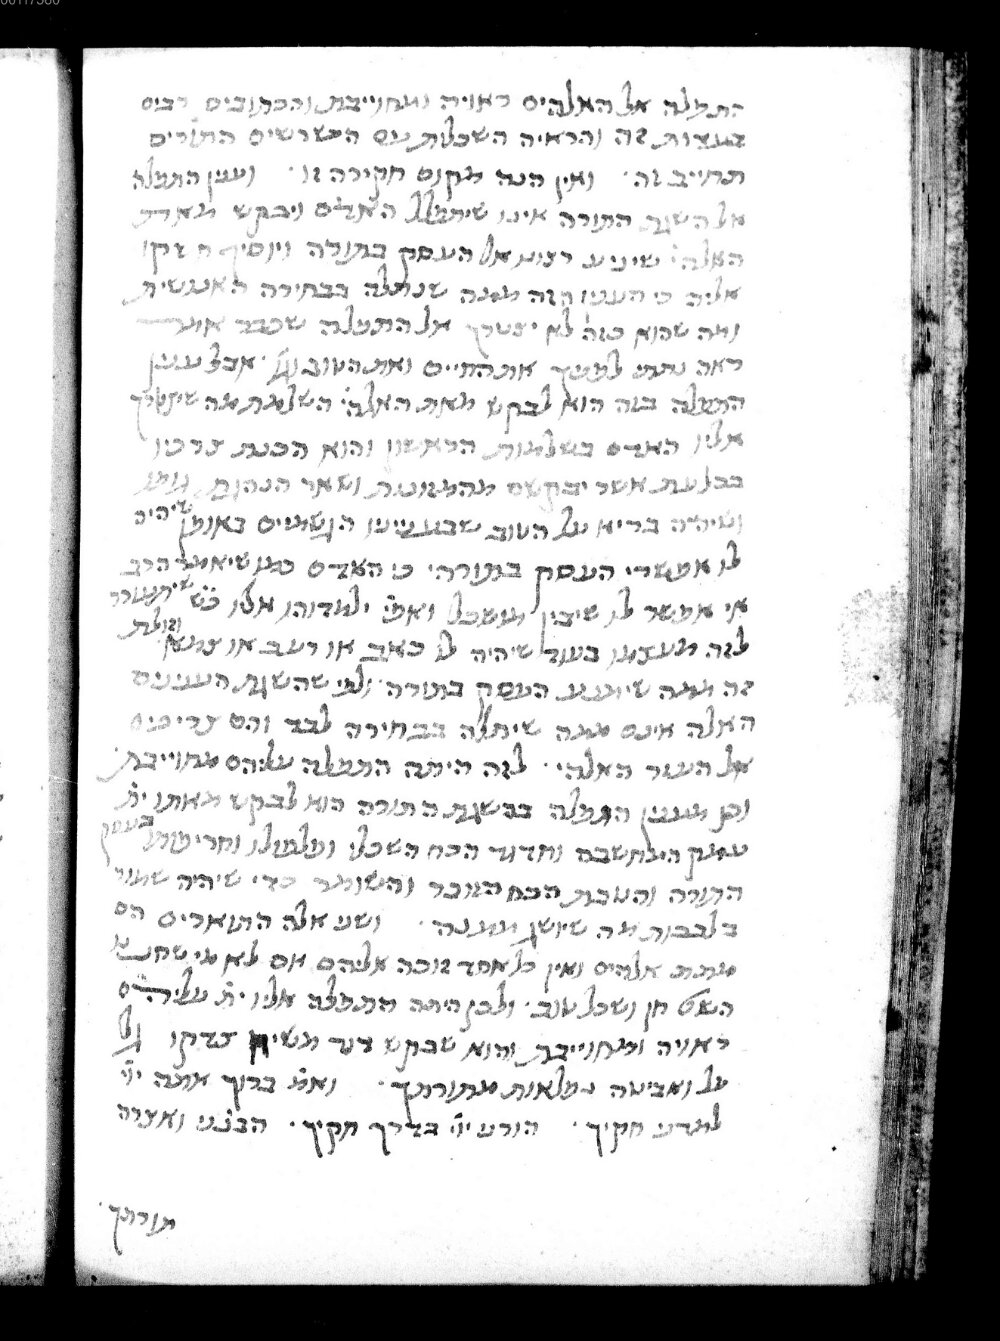 התפלה אל האלהים ראויה ומחוייבת והכתובים רבים
בעדות זה והראיה השכלית עם השרשים התוריים
תחייב זה · ואין הנה מקום חקירה זו · וענין התפלה
אל השגת התורה אינו שיתפלל האדם ויבקש מאת
האלהי׳ שיניע רצונו אל העסק בתורה ויוסיף חשקו
אליה כי הענין הזה ממה שנתלה בבחירה האנושית
ומה שהוא כזה לא יצטרך אל התפלה שכבר אומר
ראה נתתי לפניך את החיים ואת הטוב וגו׳ · אבל ענין
התפלה בזה הוא לבקש מאת האלהי׳ השלמת מה שיצטרך
אליו האדם בשלמות הראשון והוא הכנת צרכיו
בבלעת אשר יבקשם מהמזונות ושאר הנהגת גופו
ושיהיה בריא על הטוב שבעניינו הגשמיים באופן שיהיה
לו אפשרי העסק בתורה · כי האדם כמו שיאמר הרב
אי אפשר לו שיבין מושכל ואפי׳ ילמדוהו אליו כ״ש שיתעורר
לזה מעצמו בעוד שיהיה לו כאב או רעב או צמא וזולת
זה ממה שימנע העסק בתורה · ולפי שהשגת הענינים
האלה אינם ממה שיתלה בבחירה לבד והם צריכים
אל העזר האלהי · לזה היתה התפלה עליהם מחוייבת ·
וכן מענין התפלה בהשגת התורה הוא לבקש מאתו ית׳
עומק המחשבה וחדוד הכח השכלי ופלפולו וחריפותו בעסק
התורה והטבת הכח הזוכר והשומר כדי שיהיה שמור
בלבבות מה שיושג ממנה · ושני אלה התוארים הם
מתת אלהים ואין כל אחד זוכה אליהם אם לא מי שחננו
השם חן ושכל טוב · ולכן היתה התפלה אליו ית׳ עליהם
ראויה ומחוייבת והוא שבקש דוד משיח צדקו גל
עיני ואביטה נפלאות מתורתך · ואמ׳ ברוך אתה יי׳
למדני חקיך · הורני יי׳ בדרך חקיך · הבינני ואצרה
תורתך ·